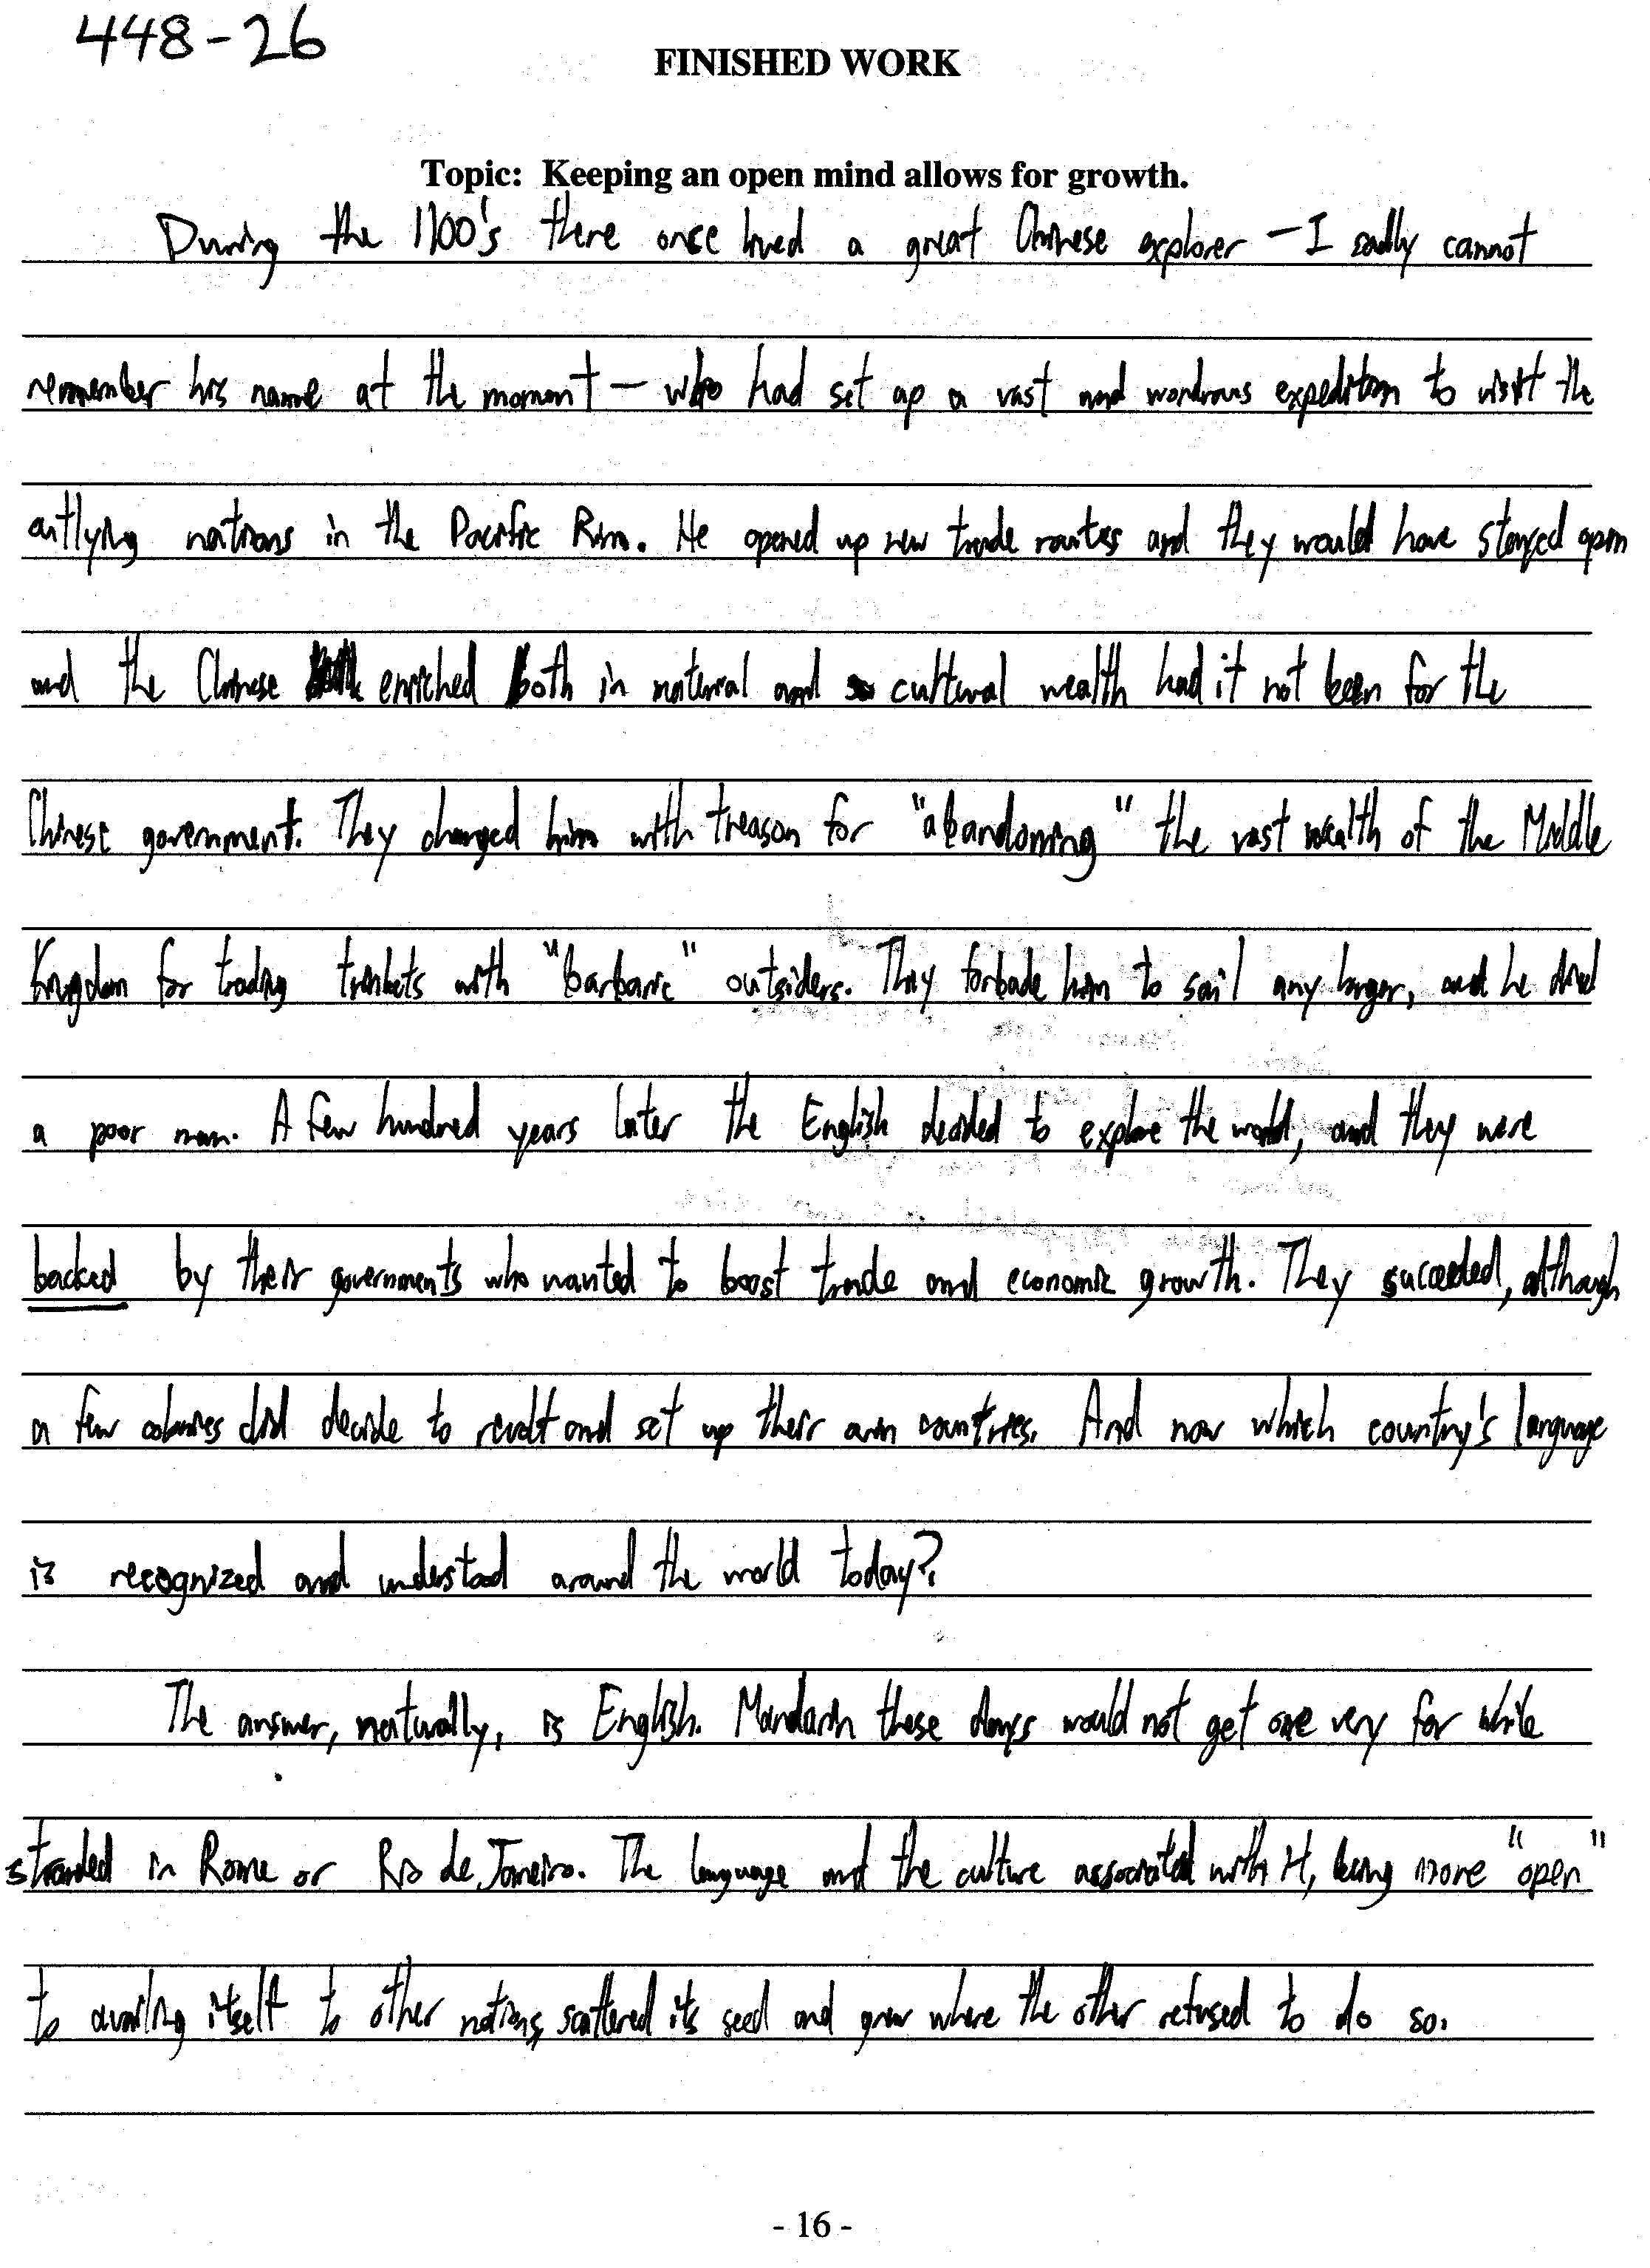 448-26
FINISHED WORK
Topic: Keeping an open mind allows for growth.
During the 1100's there once lived a great Chinese explorer — I sadly cannot
remember his name at the moment — who had set up a vast and wondrous expedition to visit the
outlying nations in the Pacific Rim. He opened up new trade routes and they would have stayed open
and the Chinese enriched both in material and cultural wealth had it not been for the
Chinese government. They charged him with treason for "abandoning" the vast wealth of the Middle
Kingdom for trading trinkets with "barbaric" outsiders. They forbade him to sail any longer, and he died
a poor man. A few hundred years later the English decided to explore the world, and they were
backed by their governments who wanted to boost trade and economic growth. They succeeded, although
a few colonies did decide to revolt and set up their own countries. And now which country's language
is recognized and understood around the world today?
The answer, naturally, is English. Mandarin these days would not get one very far while
stranded in Rome or Rio de Janeiro. The language and the culture associated with it, being more "open"
to availing itself to other nations, scattered its seed and grew where the other refused to do so.
- 16 -